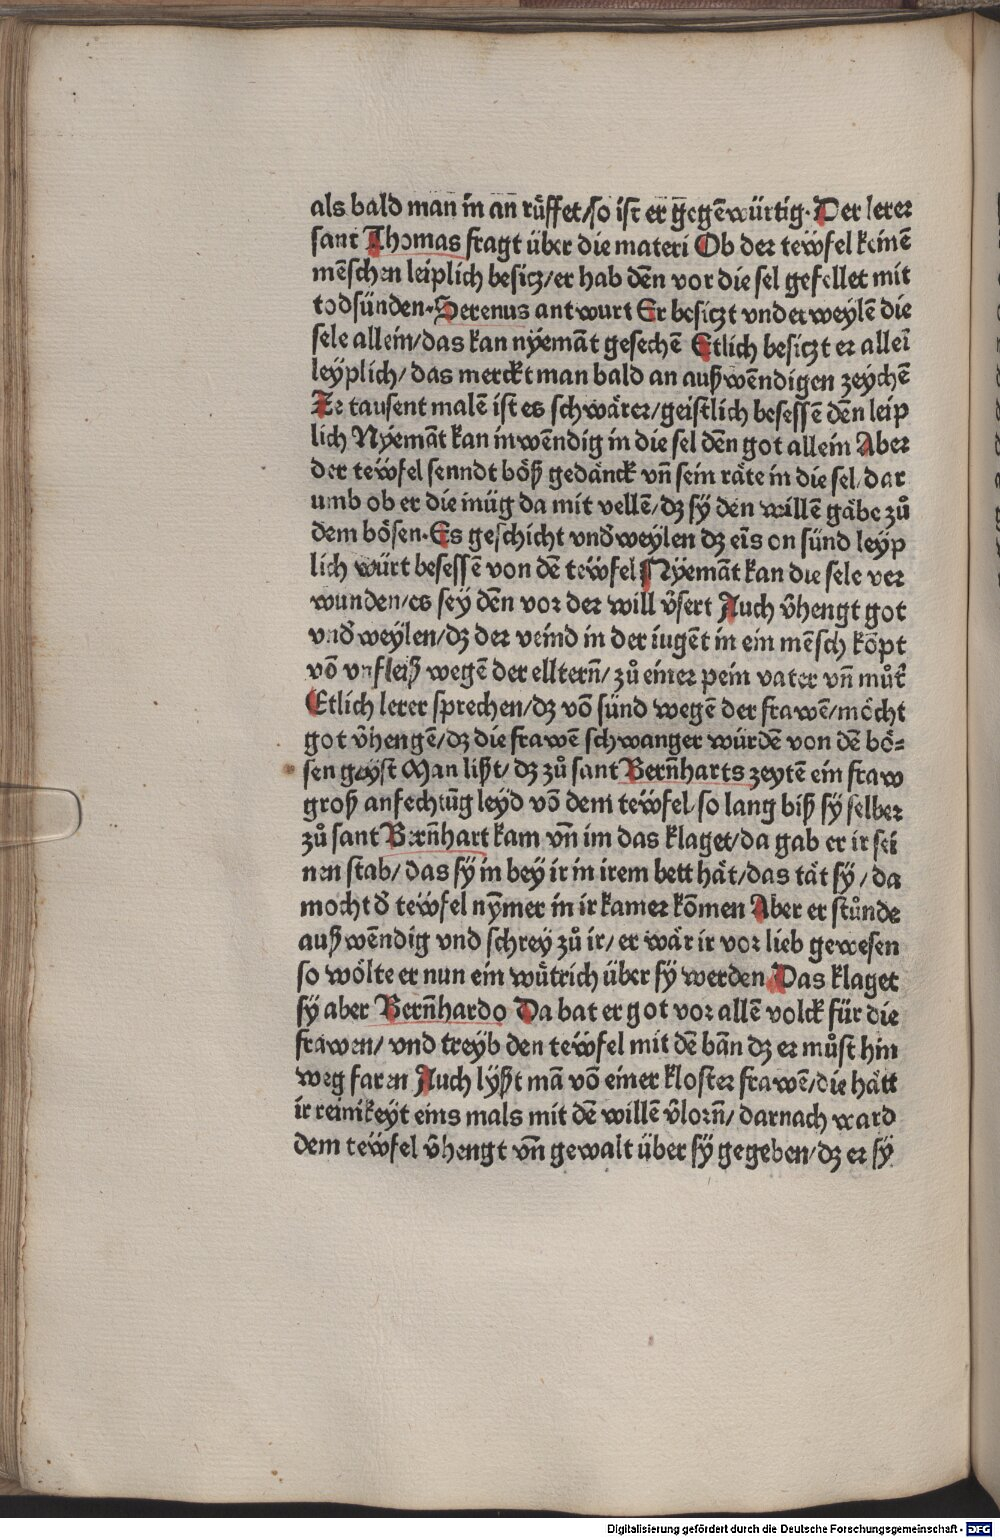 als bald man in an rüffet/so ist er gegẽwürtig. Der lerer
sant Thomas fragt über die materi Ob der tewfel keinẽ
mẽschen leiplich besicz/er hab dẽn vor die sel gefellet mit
todsünden. Serenus antwurt Er besiczt vnderweylẽ die
sele allein/das kan nyemãt gesechẽ Etlich besiczt er alleĩ
leyplich/das merckt man bald an außwẽndigen zeychẽ
Er tausent malẽ ist es schwärer/geistlich besessẽ dẽn leip
lich Nyemãt kan inwẽndig in die sel dẽn got allein Aber
der tewfel senndt böß gedänck vñ sein räte in die sel/dar
umb ob er die müg da mit vellẽ/dz sy den willẽ gäbe zů
dem bösen. Es geschicht vnd̕weylen dz eĩs on sünd leyp
lich würt besessẽ von dẽ tewfel Nyemãt kan die sele ver
wunden/es sey dẽn vor der will v̕sert Auch v̕hengt got
vnd̕weylen/dz der veind in der iugẽt in ein mẽsch kõpt
võ vnfleiß wegẽ der ellterñ/zů einer pein vater vñ můt̕
Etlich lerer sprechen/dz võ sünd wegẽ der frawẽ/möcht
got v̕hengẽ/dz die frawẽ schwanger würdẽ von dẽ bö-
sen geyst Man lißt/dz zů sant Berñharts zeytẽ ein fraw
groß anfechtũg leyd võ dem tewfel/so lang biß sy selber
zů sant Berñhart kam vñ im das klaget/da gab er ir sei
nen stab/das sy in bey ir in irem bett hät/das tät sy/da
mocht d̕ tewfel nym̃er in ir kamer kõmen Aber er stůnde
außwẽndig vnd schrey zů ir/er wär ir vor lieb gewesen
so wölte er nun ein wütrich über sy werden Das klaget
sy aber Berñhardo Da bat er got vor allẽ volck für die
frawen/vnd treyb den tewfel mit dẽ bãn dz er můst hin
weg faren Auch lyßt mã võ einer kloster frawẽ/die hätt
ir reinikeyt eins mals mit dẽ willẽ v̕lorñ/darnach ward
dem tewfel v̕hengt vñ gewalt über sy gegeben/dz er sy
Digitalisierung gefördert durch die Deutsche Forschungsgemeinschaft - DFG